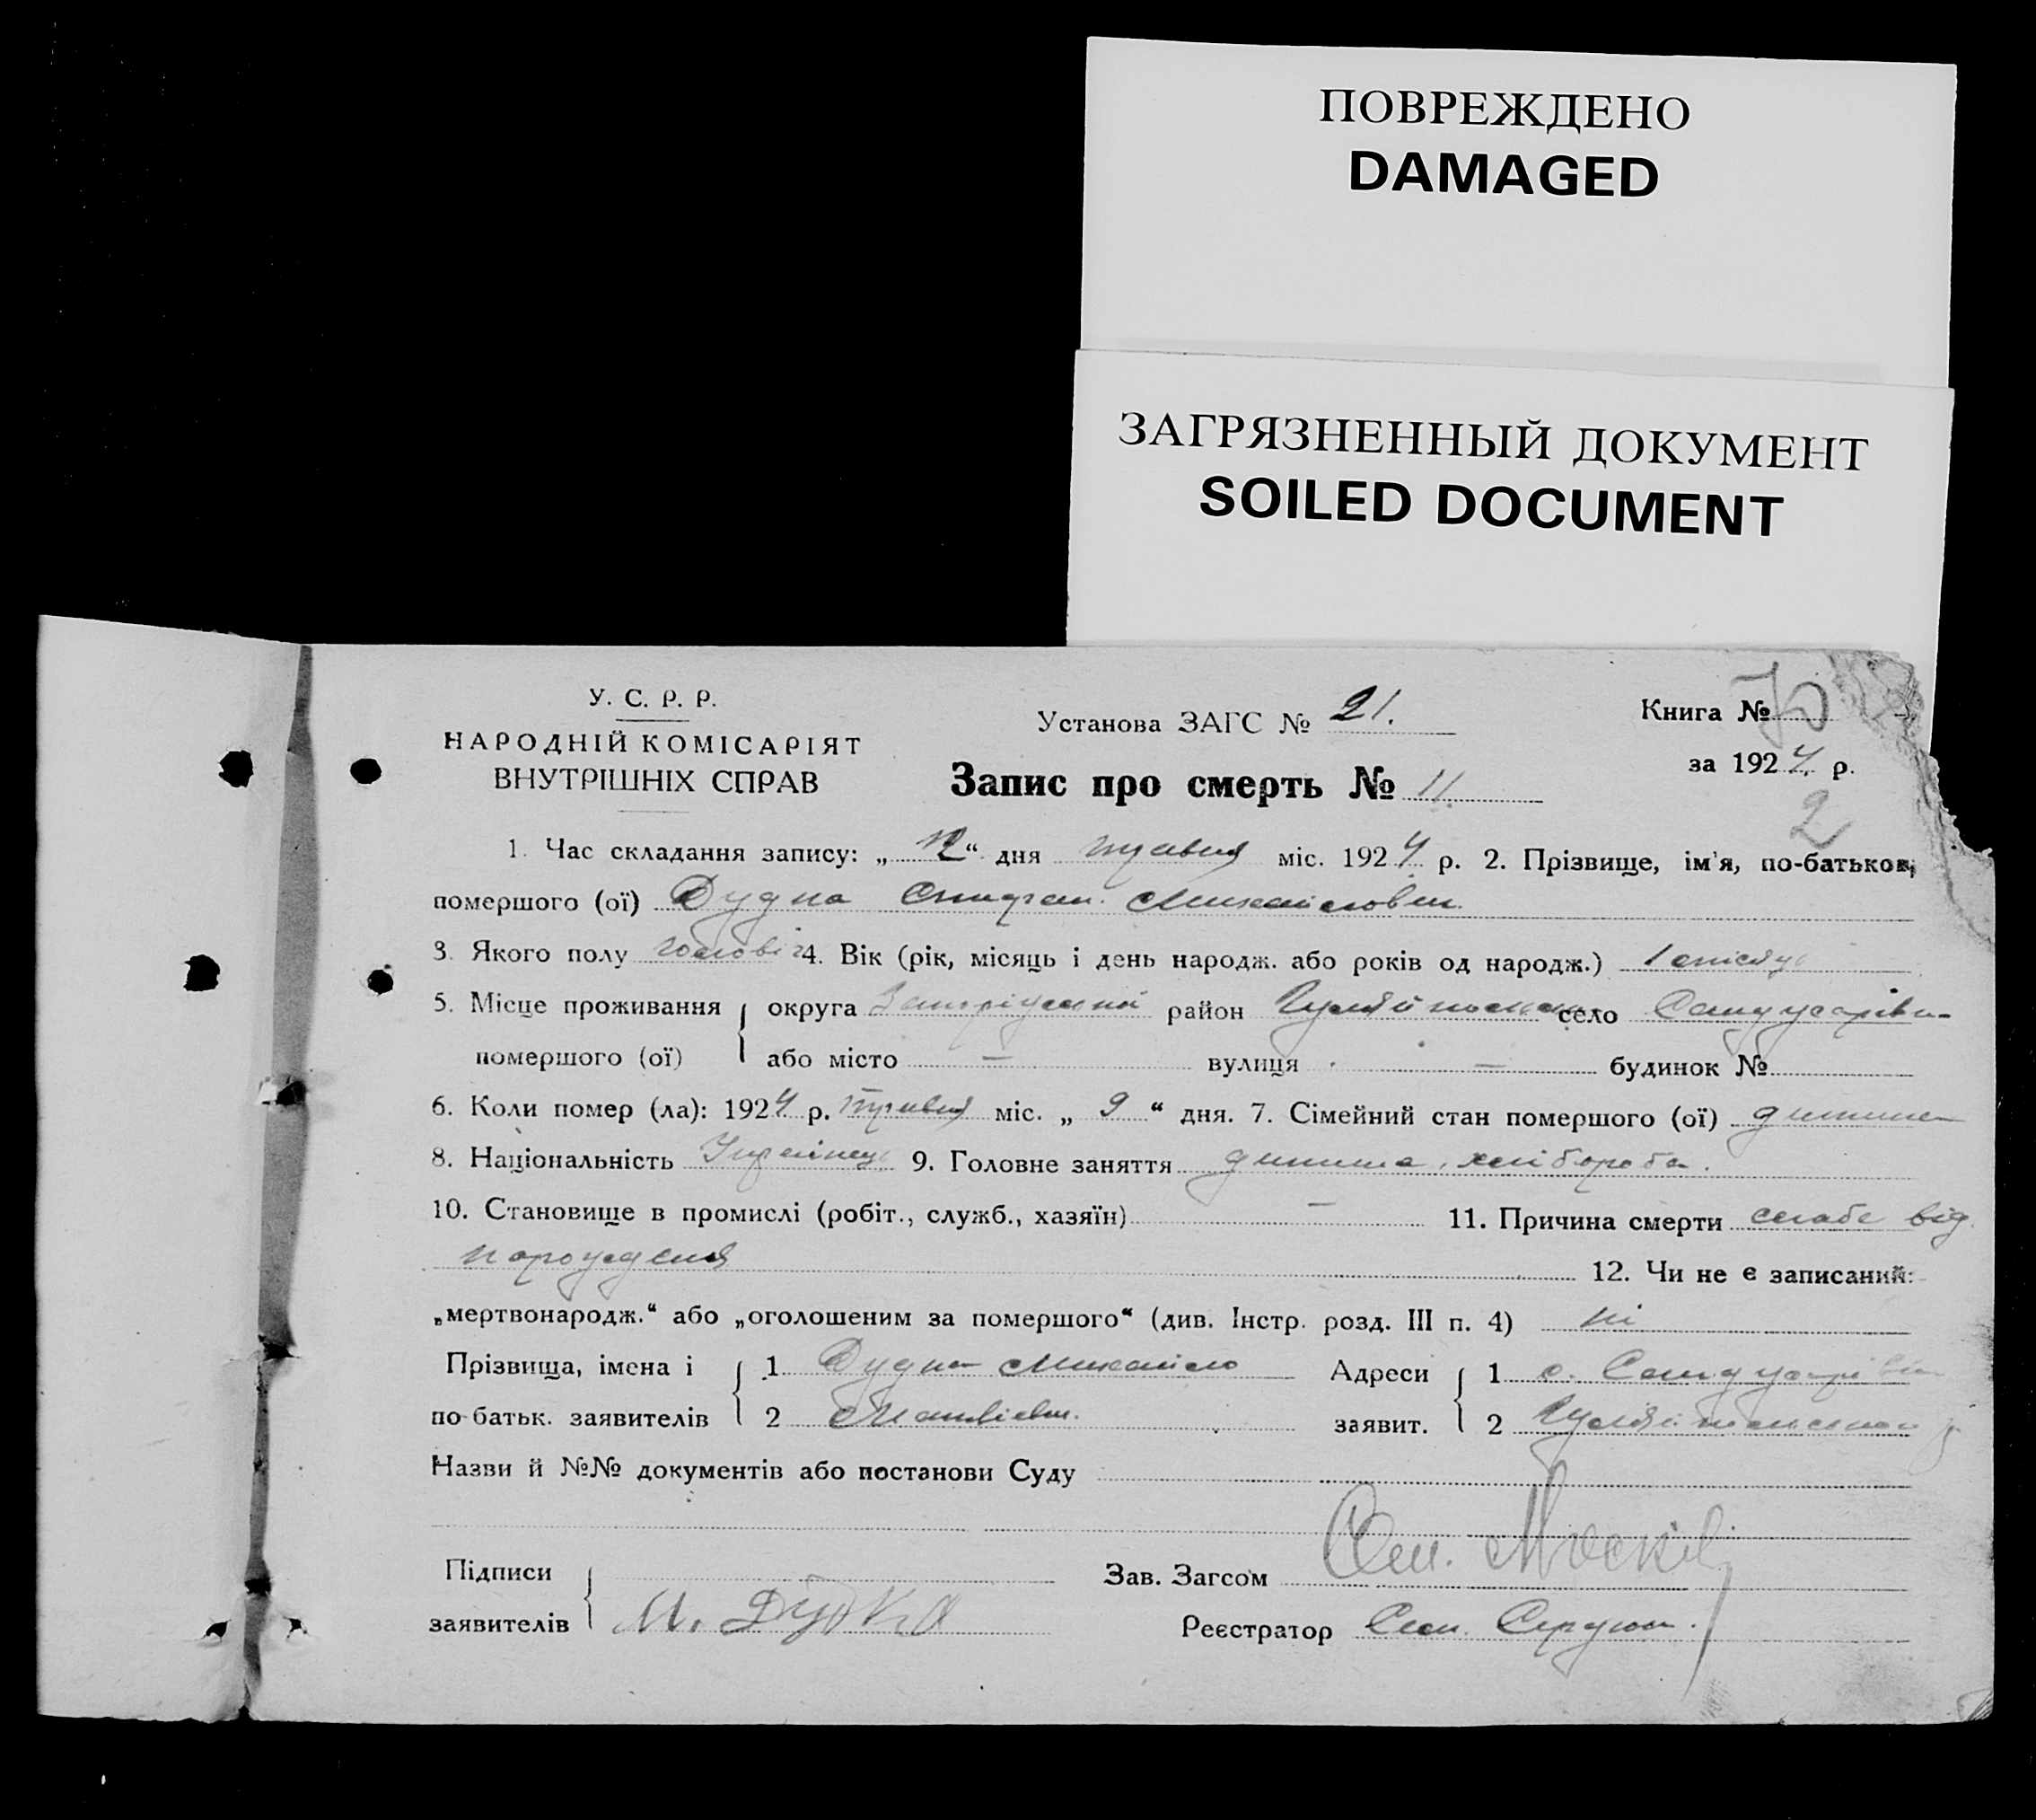 ПОВРЕЖДЕНО
DAMAGED
ЗАГРЯЗНЕННЫЙ ДОКУМЕНТ
SOILED DOCUMENT
У. С. Р. Р.
НАРОДНІЙ КОМІСАРІЯТ
ВНУТРІШНІХ СПРАВ
Установа ЗАГС № 21.
Книга №
за 1924 р.
Запис про смерть № 11.
2
1. Час складання запису: „12“ дня травня міс. 1924 р. 2. Прізвище, ім'я, по-батьков,
помершого (ої) Дудка Михайлович
3. Якого полу чоловіч 4. Вік (рік, місяць і день народж. або років од народж.) 1 місяць
5. Місце проживання округа Запоріжської район Гуляйпольск село Санжарівка
помершого (ої) або місто — вулиця — будинок №
6. Коли помер (ла): 1924 р. травня міс. „ 9 “ дня. 7. Сімейний стан помершого (ої) дитина
8. Національність Українець 9. Головне заняття дитина, хлібороба.
10. Становище в промислі (робіт., служб., хазяїн) — 11. Причина смерти слабе від
народження
12. Чи не є записаний:
„мертвонародж.“ або „оголошеним за помершого“ (див. Інстр. розд. III п. 4) ні
Прізвища, імена і 1 Дудка Михайло Адреси 1 с. Санжарівка
по-батьк. заявителів 2 заявит. 2
Назви й №№ документів або постанови Суду
Підписи
Зав. Загсом
заявителів М. Дудка
Реєстратор